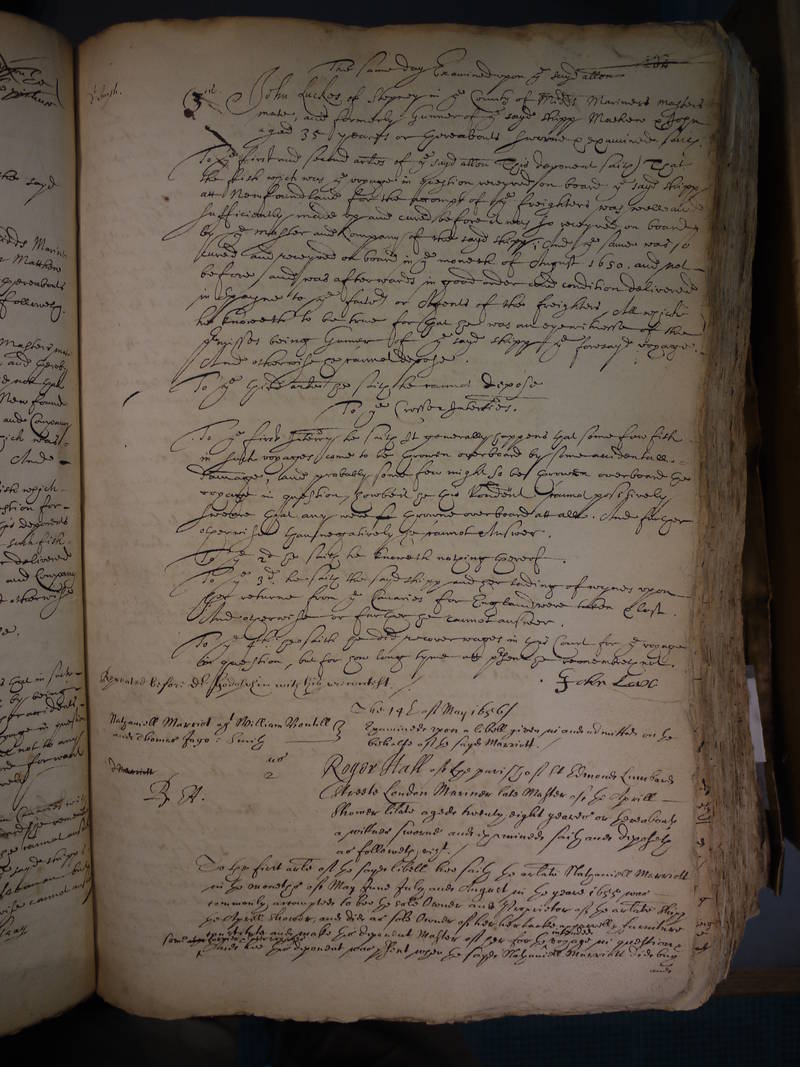 The same day Examined upon ye sayd allon
3us. John Luckes of Stepney in ye County of Middx Mariner masters
mate, and formerly Gunner of ye sayd shipp Mathew & John
aged 35 yeares or thereabouts sworne & examined saith.
To ye first and second arles of ye sayd allon This deponent saith That
the fish which was ye voyage in question receyved on board ye sayd shipp
att Newfoundland for the accompt of ye freighters was well and
sufficiently made up and cured before it was so receyved on board
by ye Master and Company of the sayd shipp, And ye same was so
cured and receyved on board in ye moneth of August 1650. and not
before, and was afterwards in good order and condition delivered
in Spayne to ye factors or Agents of the freighters All which
he knoweth to be true for that he was an eyewitnesse of the
premisses being Gunner of ye sayd shipp ye foresayd voyage.
And otherwise he cannot depose.
To ye third arle he saith he cannot depose
To ye Crosse Interries.
To ye first Interry he saith It generally happens that some few fish
in such voyages come to be throwne overboard by some accidentall
damage, and probably some few might so be throwne overboard the
voyage in question, howbeit he this Rendent cannot positively
that any were throwne overboard at all. And further
otherwise than negatively he cannot Answer.
To ye 2d he saith he knoweth nothing thereof.
To ye 3d. he saith the sayd shipp and her lading of wynes upon
her returne from ye Canaries for England were taken & lost.
And otherwise or further he cannot answer.
To ye 4th he saith he did recover wages in this Court for ye voyage
in question, but for how long tyme att present he remembers not.
Repeated before dr Godolphin John
The 14th of May 1656
Nathaniell Marriot agt William
and Thomas Jugo: Smith
Examined upon a libell given in and admitted on the
behalfe of the sayd Marriott.
Roger Hall of the parish of St Edmonds Lumbard
Streete London Mariner late Master of the Aprill
Shower aged twenty eight yeares or thereabouts
a witnes sworne and examined saith and deposeth
as followeth, vizt.
To the first arle of the sayd libell hee saith the arlate Nathaniell Marriott
in the moneths of May June July and August in the yeare 1655 was
commonly accompted to bee the sole Owner and Proprietor of the arlate shipp
the Aprill Shower, and did as sole Owner of her her tackle apparrell & furniture
constitute and make this deponent Master of her for the voyage in question
hee this deponent was present when the sayd Nathaniell Marriott did buy
and